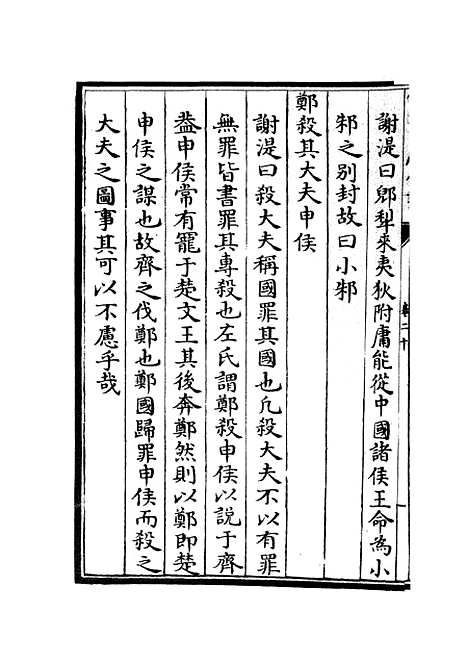 謝湜曰郳犁來夷狄附庸能從中國諸侯王命為小
邾之別封故曰小邾
鄭殺其大夫申侯
謝湜曰殺大夫稱國罪其國也凡殺大夫不以有罪
無罪皆書罪其專殺也左氏謂鄭殺申侯以説于齊
葢申侯常有寵于楚文王其後奔鄭然則以鄭即楚
申侯之謀也故齊之伐鄭也鄭國歸罪申侯而殺之
大夫之圖事其可以不慮乎哉